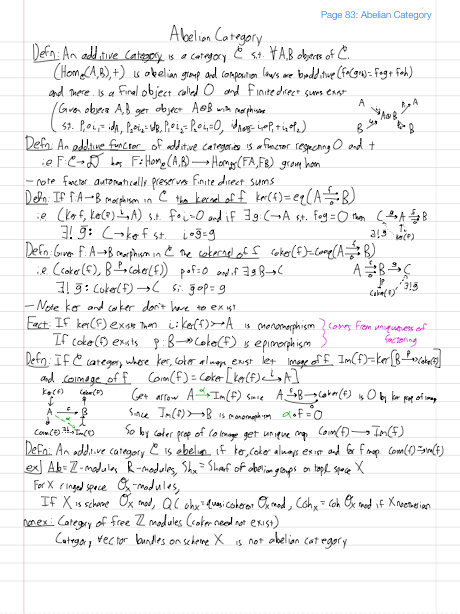 Page 83: Abelian Category
Abelian Category
Defn: An additive category is a category C s.t. ∀A,B objects of C.
(Hom_C(A,B),+) is abelian group and composition laws are biadditive (f∘(g+h) = f∘g + f∘h)
and there is a final object called O and finite direct sums exist
(Given objects A,B get object A⊕B with morphisms
s.t. P₁∘i₁ = id_A, P₂∘i₂ = id_B, P₁∘i₂ = P₂∘i₁ = 0, id_A⊕B = i₁∘P₁ + i₂∘P₂)
A A⊕B A
B B
Defn: An additive functor of additive categories is a functor respecting O and +
i.e F: C → D has F: Hom_C(A,B) → Hom_D(FA,FB) group hom
– note functor automatically preserves finite direct sums
Defn: If f: A→B morphism in C the kernel of f ker(f) = eq(A ⇉ B)
i.e (ker f, ker(f) →i A) s.t. f∘i = 0 and if ∃ g: C→A s.t. f∘g = 0 then
∃! g̃: C → ker f s.t. i∘g̃ = g
C →g A →f B
∃! g̃ ker(f)
Defn: Given f: A→B morphism in C the cokernel of f coker(f) = coeq(A ⇉ B)
i.e (coker(f), B →p coker(f)) p∘f = 0 and if ∃ g B→C
∃! g̃: coker(f) → C s.t. g̃∘p = g
A →f B →g C
coker(f) ∃! g̃
– Note ker and coker don't have to exist
Fact: If ker(f) exists then i: ker(f) ↣ A is monomorphism
If coker(f) exists p: B ↠ coker(f) is epimorphism
} comes from uniqueness of factoring
Defn: If C category, where ker, coker always exist let image of f Im(f) = ker[B →p coker(f)]
and coimage of f Coim(f) = coker[ker(f) →i A]
ker(f) coker(f)
A →f B
α
coim(f) ∃! Im(f)
Get arrow A →α Im(f) since A →f B → coker(f) is 0 by ker prop of image
Since Im(f) ↣ B is monomorphism α∘i = 0
So by coker prop of coimage get unique map Coim(f) → Im(f)
Defn: An additive category C is abelian if ker, coker always exist and for f map coim(f) ≅ im(f)
ex| Ab = Z-modules, R-modules, Sh_X = Sheaf of abelian groups on topl space X
For X ringed space O_X-modules,
If X is scheme O_X mod, QCoh_X = quasicoherent O_X mod, Coh_X = coh O_X mod if X noetherian
nonex: Category of free Z modules (coker need not exist)
Category vector bundles on scheme X is not abelian category